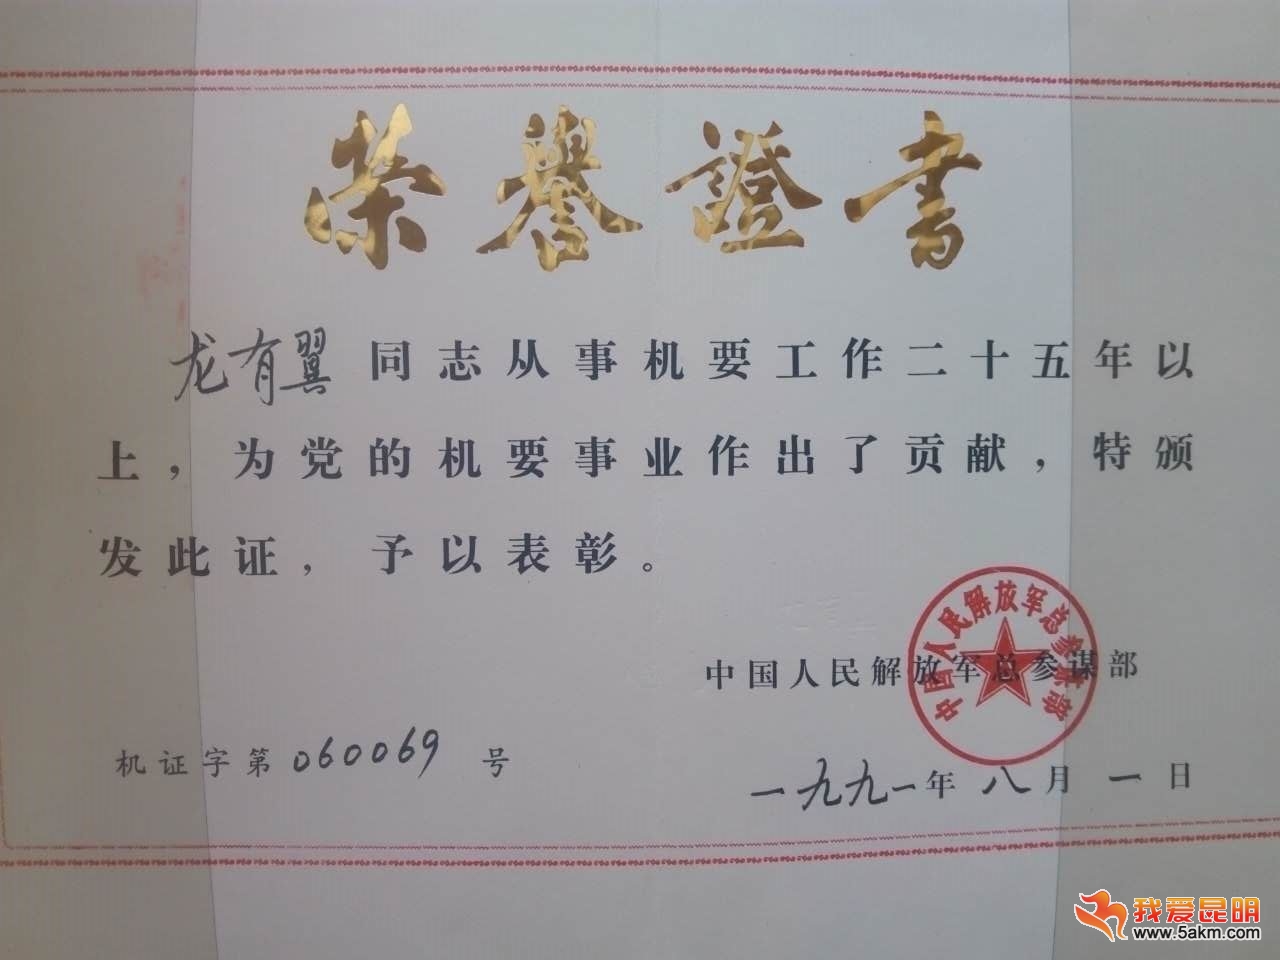 荣誉證书
龙有翼同志从事机要工作二十五年以
上，为党的机要事业作出了贡献，特颁
发此证，予以表彰。
中国人民解放军总参谋部
中国人民解放军总参谋部
机证字第060069号
一九九一年八月一日
我爱昆明
www.5akm.com